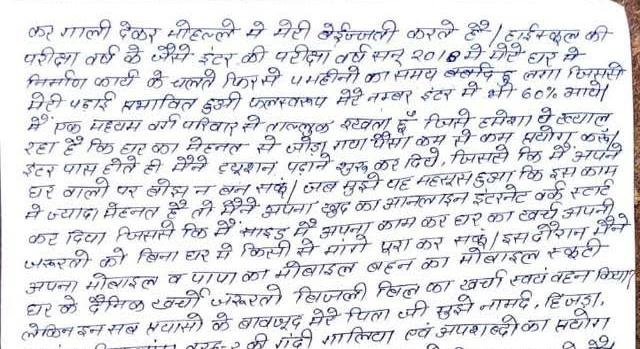 कर गाली देकर मोहल्ले मे मेरी बेईज्जती करते है / हाईस्कूल की
परीक्षा वर्ष के जैसे इंटर की परीक्षा वर्ष सन् 2018 मे मेरे घर मे
निर्माण कार्य के चलते फिर से महीनो का समय बर्बाद लगा जिससे
मेरी पढाई प्रभावित हुओ फलस्वरूप मेरे नम्बर इंटर मे भी 60% आये/
मैं एक मध्यम वर्ग परिवार से ताल्लुक रखता हूँ जिसे हमेशा ये ख्याल
रहा है कि घर का मेहनत से जोडा गया पैसा कम से कम प्रयोग करूं/
इंटर पास होते ही मैने ट्यूशन पढाने शुरू कर दिये, जिससे कि मैं अपने
घर वालो पर बोझ न बन सकूं/ जब मुझे यह महसूस हुआ कि इस काम
मे ज्यादा मेहनत है तो मैंने अपना खुद का आनलाइन इंटरनेट वर्क स्टार्ट
कर दिया जिससे कि मैं साइड मैं अपना काम कर घर का खर्च अपनी
जरूरतो को बिना घर मे किसी से मांगे पूरा कर सकूं/ इस दौरान मैंने
अपना मोबाइल व पापा का मोबाइल बहन का मोबाइल स्कूटी
घर के दैनिक खर्चो जरूरतो बिजली बिल का खर्चा स्वयं वहन किया/
लेकिन इन सब प्रयासो के बावजूद मेरे पिता जी मुझे नामर्द, हिजडा,
की गंदी गालिया एवं अपशब्दो का प्रयोग